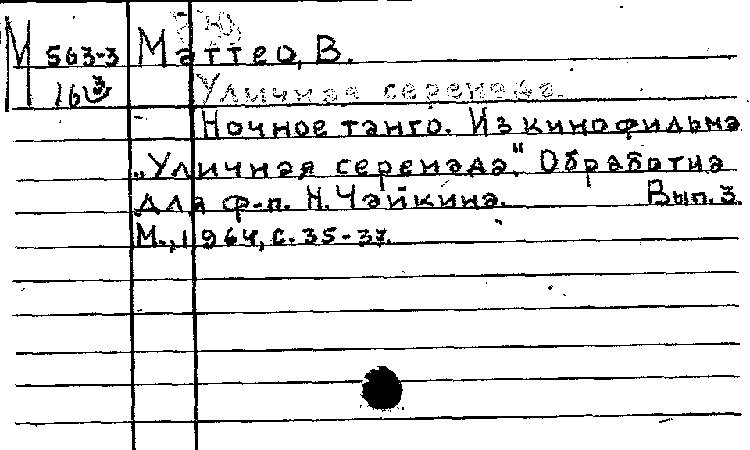 М 563-3 Маттео, В.
163 Уличная серенада.
Ночное танго. Из кинофильма
„Уличная серенада". Обработка
для ф-п. Н. Чайкина. Вып. 3.
М., 1964, с. 35-37.